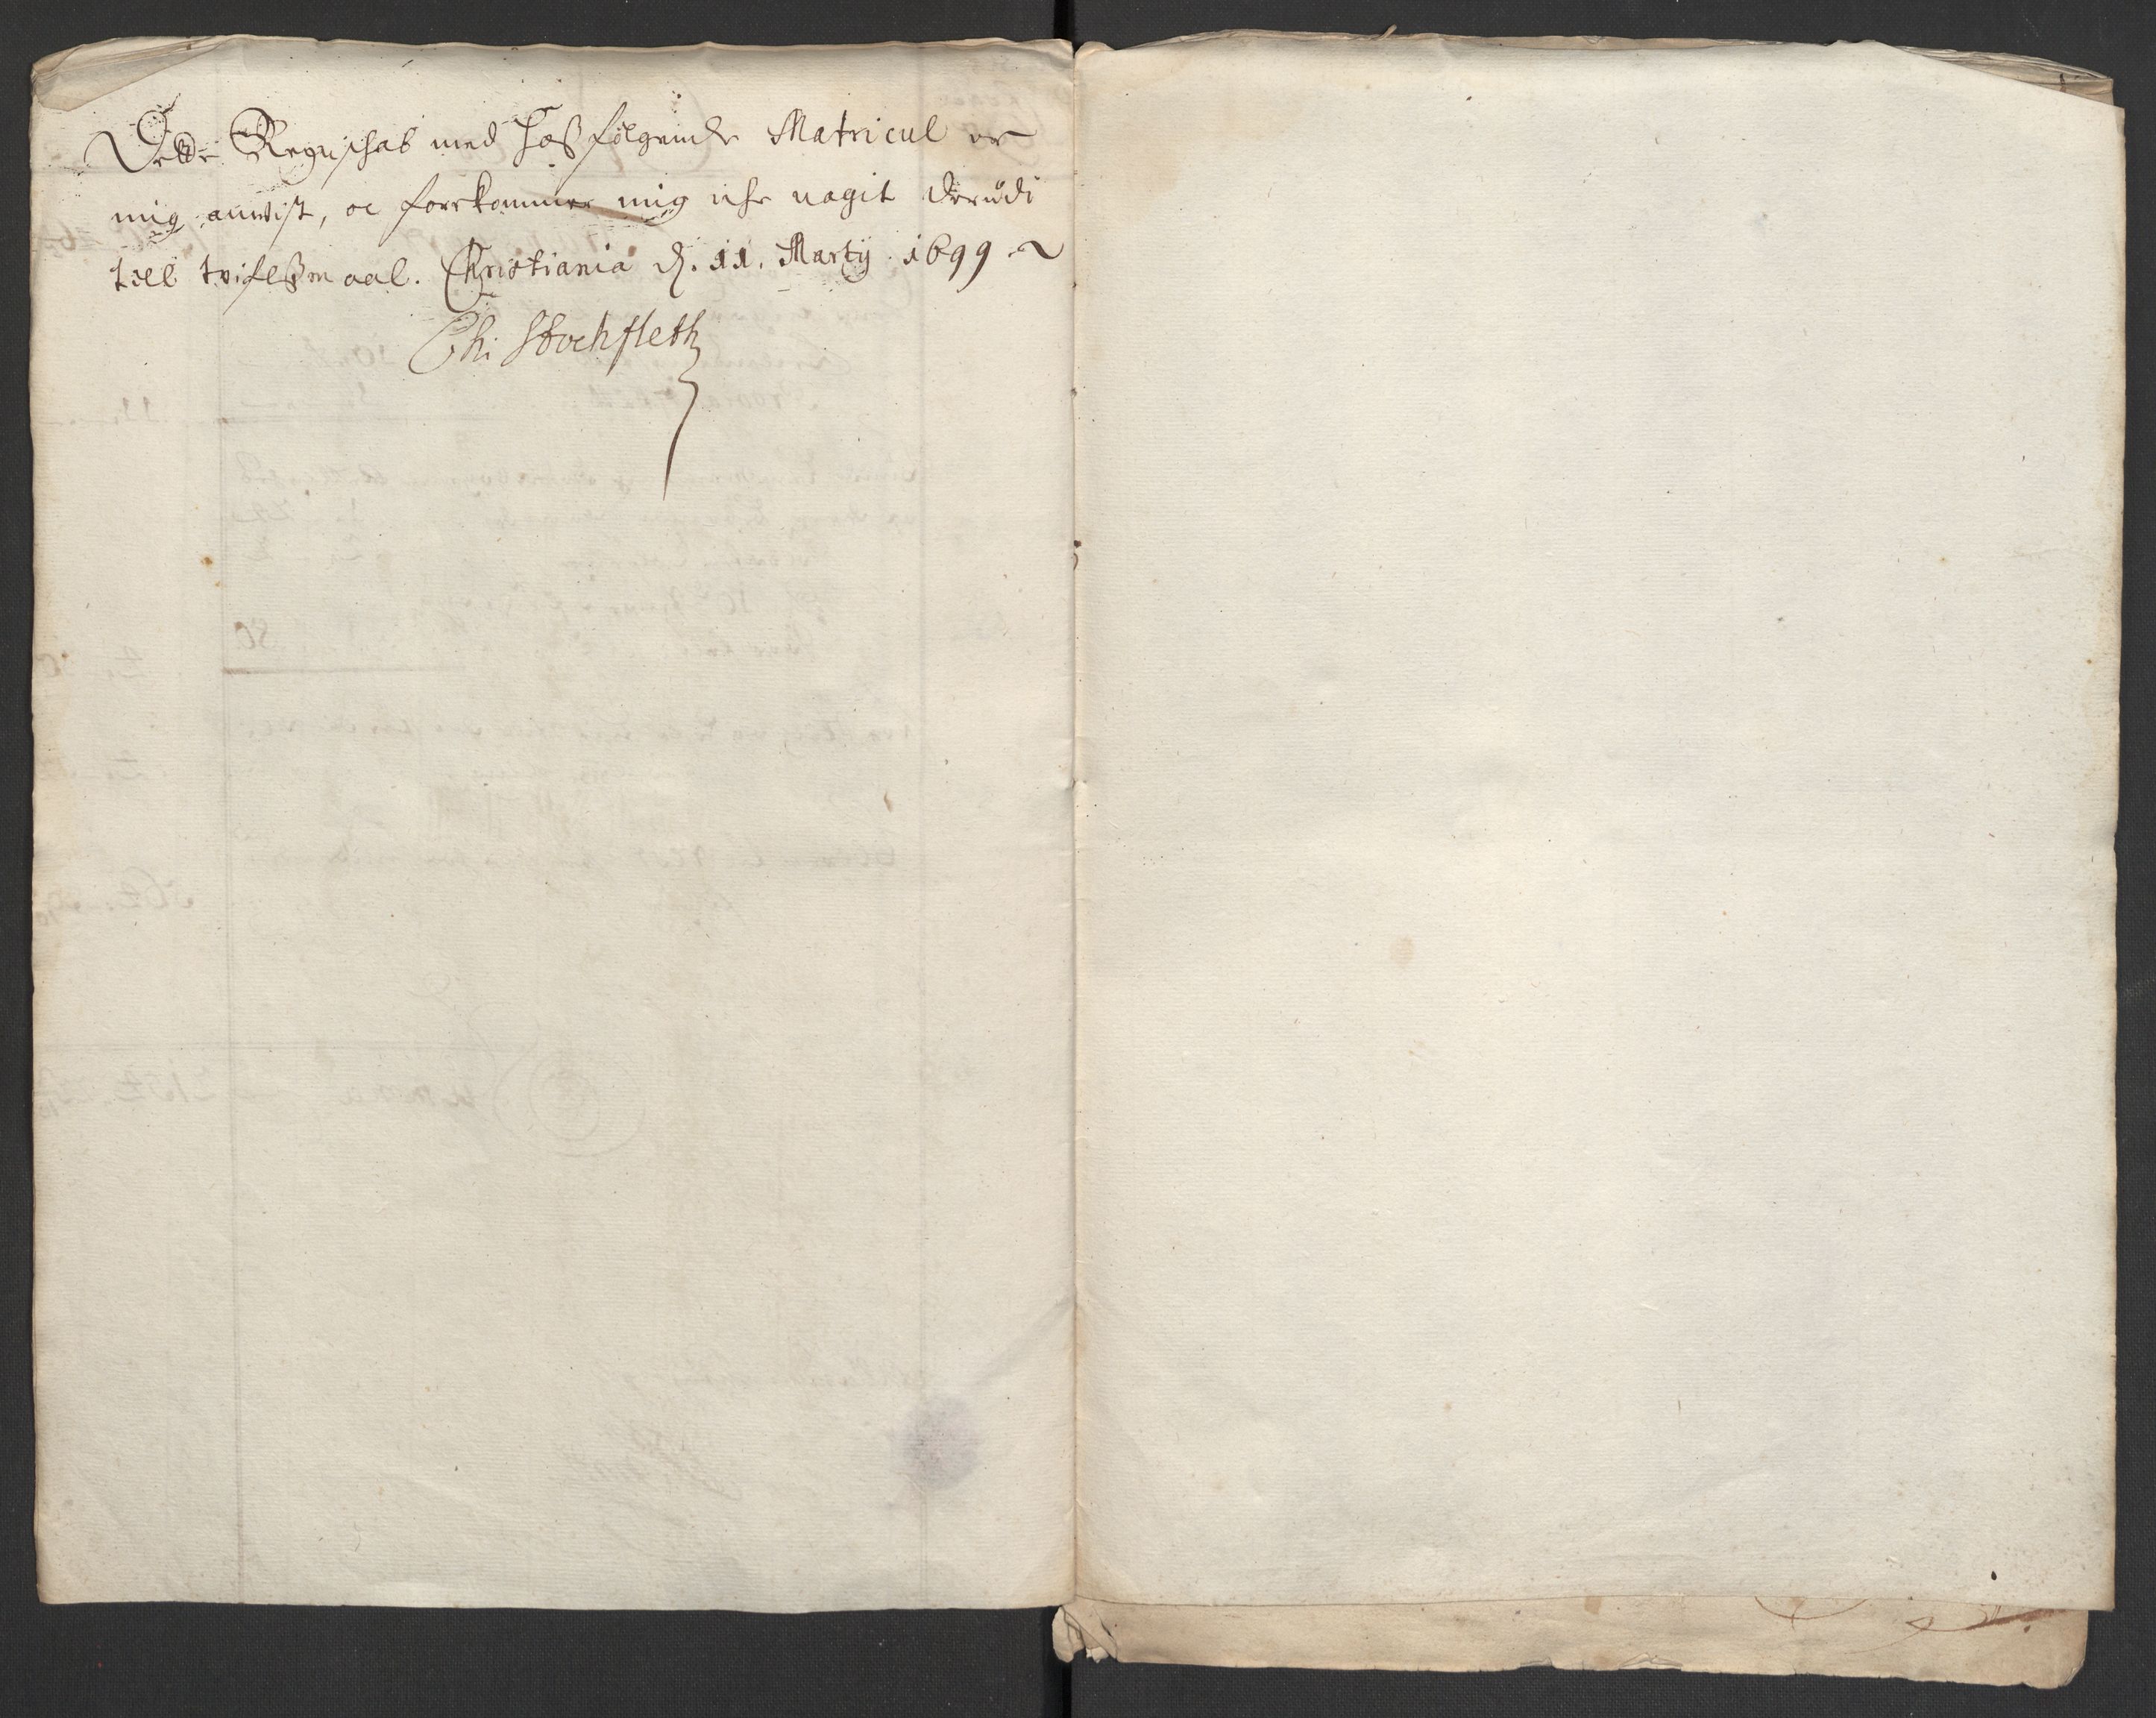 Dette Regnschab med Hosfølgende Matricul er
mig anvist, oc forekommer mig iche noget derudi
till tvifelsmaal. Christiania d. 11. Martij 1699
Chr Stochfleth